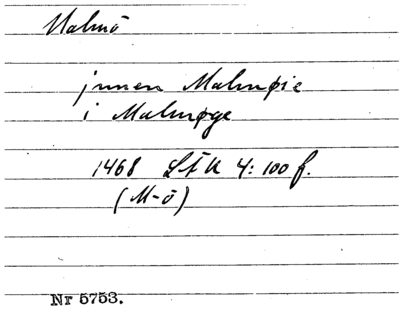 Malmö
jnnen Malmøie
i Malmøge
1468 LÅU 4: 100 f.
(M-ö)
Nr 5753.